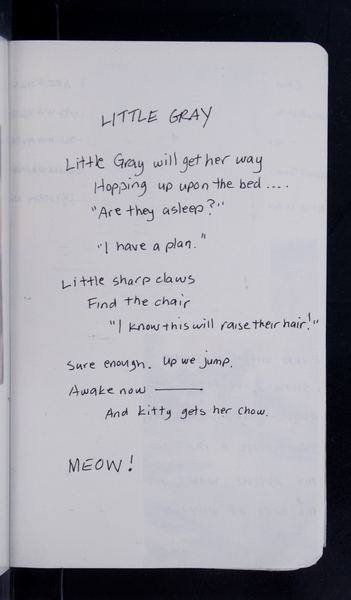 LITTLE GRAY
Little Gray will get her way
Hopping up upon the bed....
"Are they asleep?"
"I have a plan."
Little sharp claws
Find the chair
"I know this will raise their hair!"
Sure enough. Up we jump.
Awake now ———
And kitty gets her chow.
MEOW!